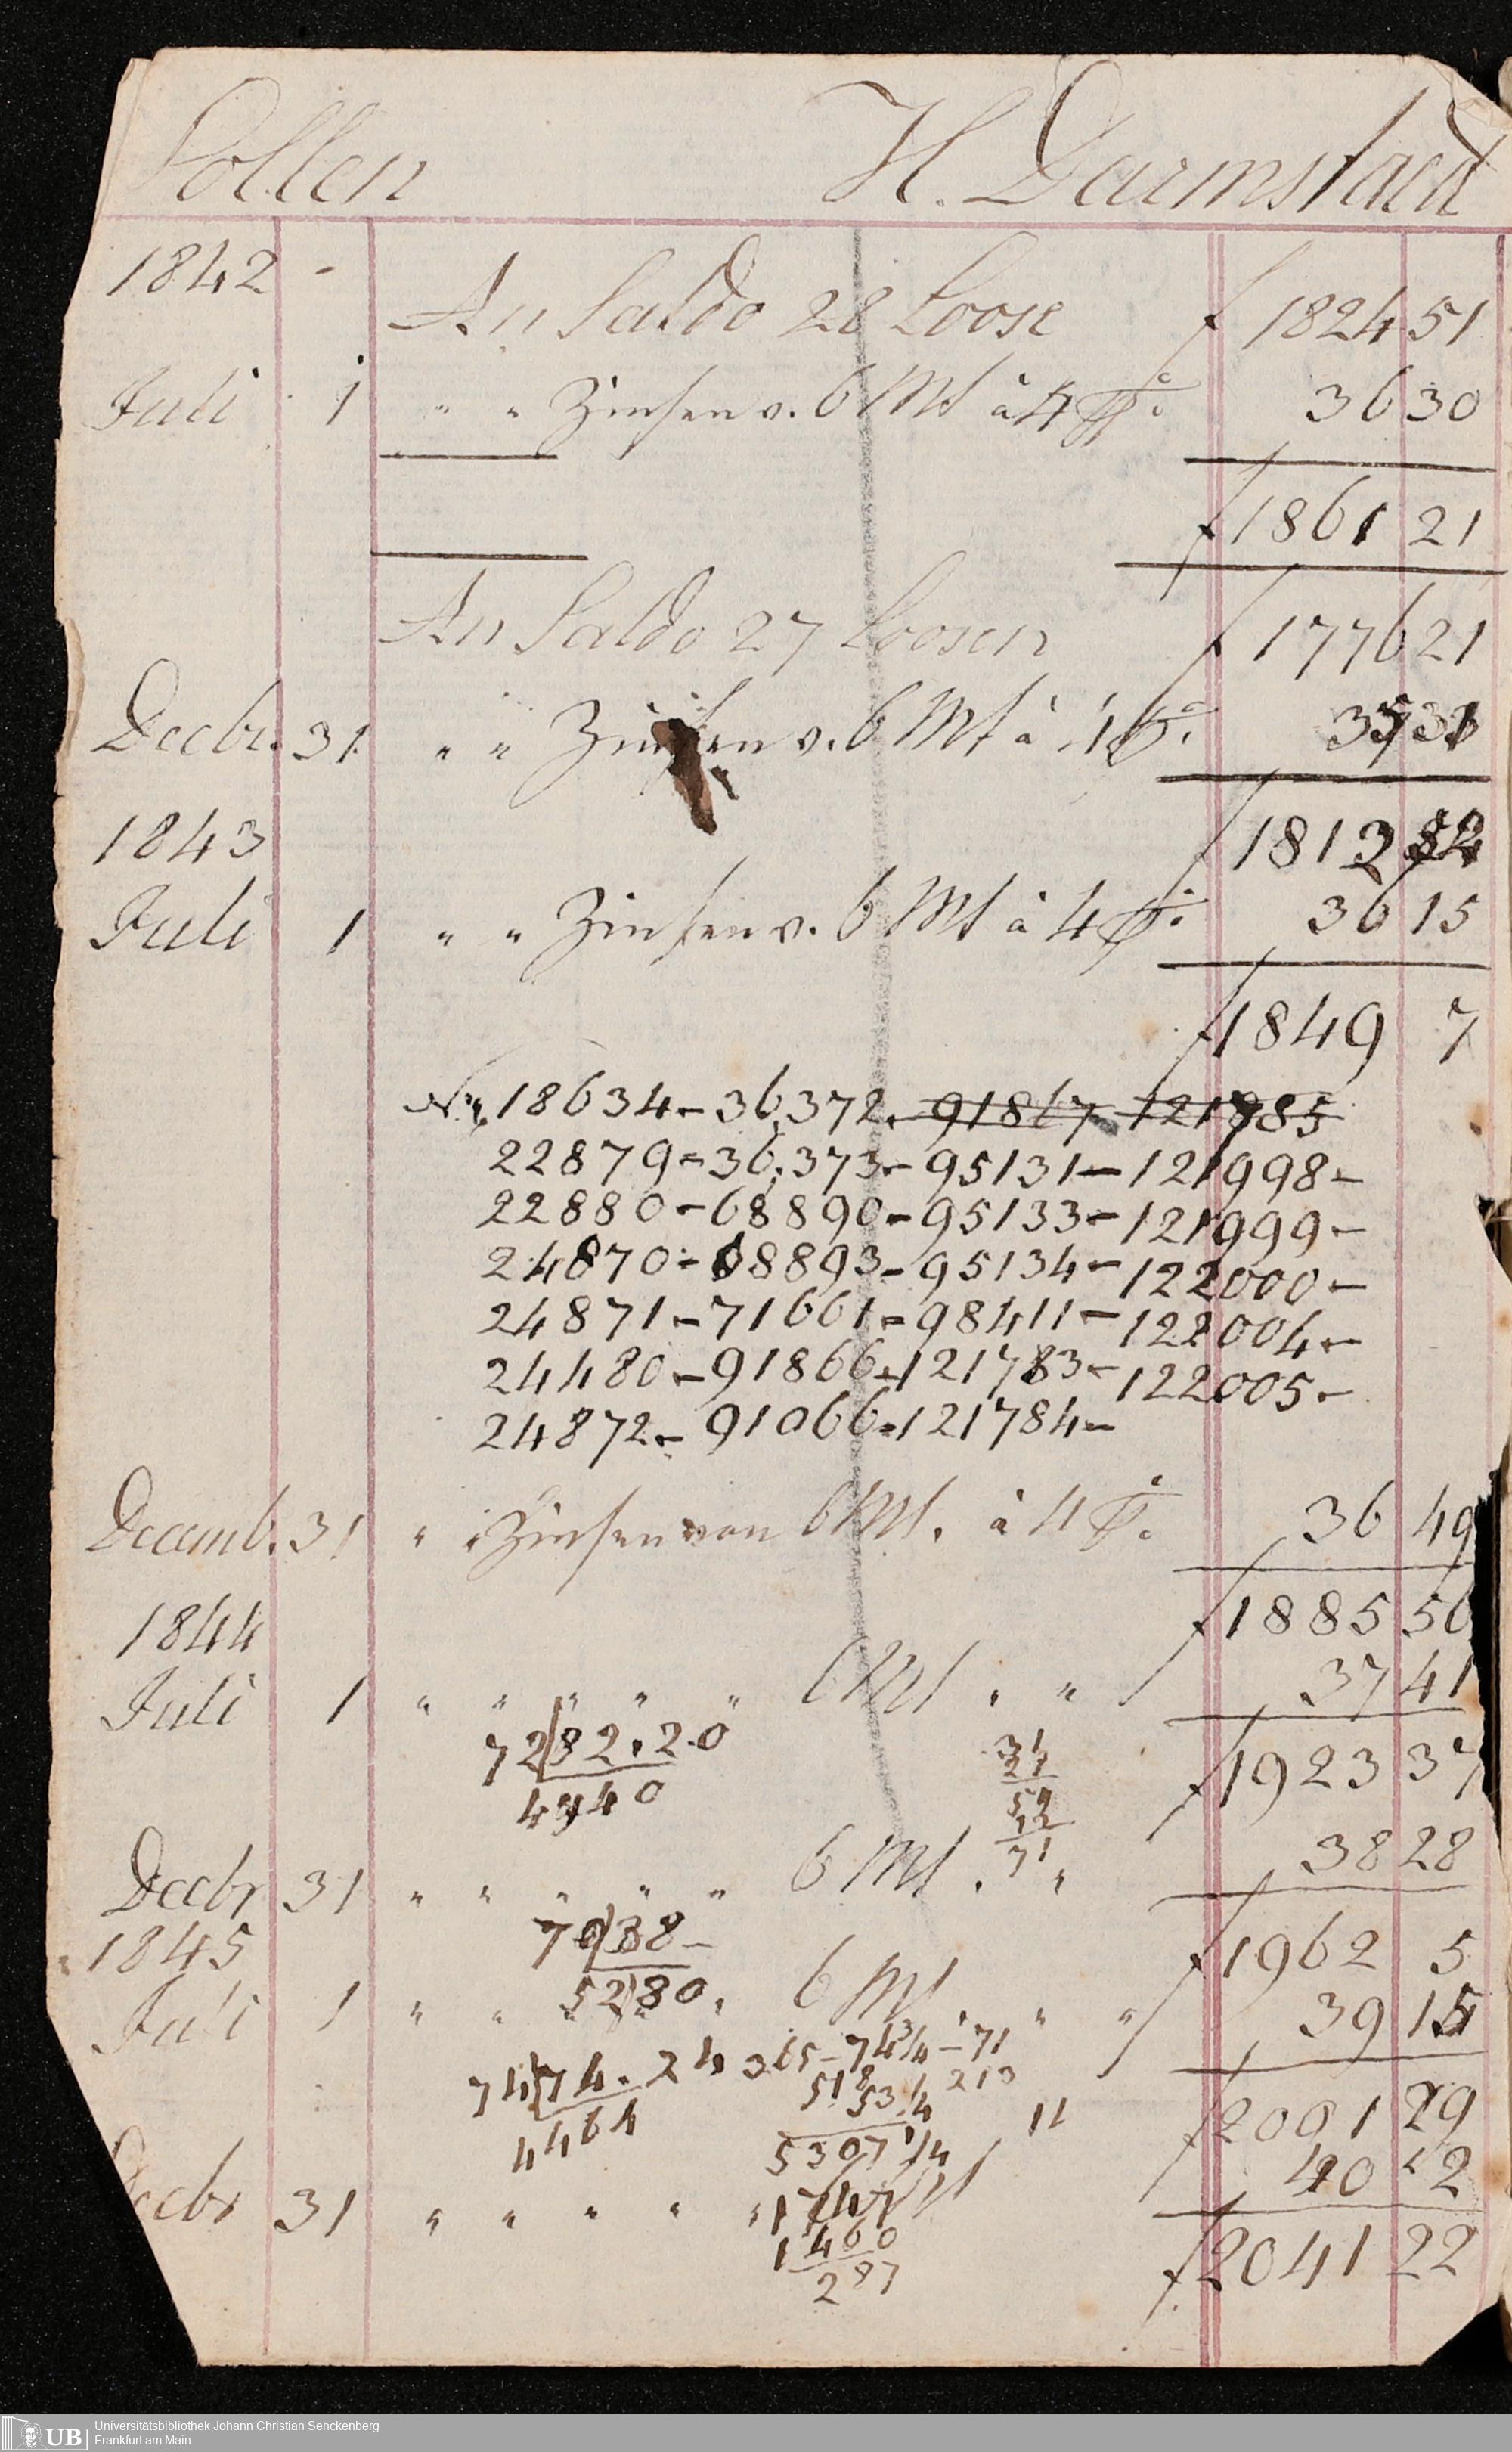 Sollen H. Darmstaedt
1842 -
An Saldo 28 Loose f 1824 51
Juli 1 " " Zinsen v. 6 Mt à 4 p.c. 36 30
f 1861 21
An Saldo 27 Loosen f 1776 21
Decbr. 31 " " Zinsen v. 6 Mt à 4 p.c. 35 31
1843
f 1812 52
Juli 1 " " Zinsen v. 6 Mt à 4 p.c. 36 15
f 1849 7
No. 18634 - 36,372. 91867 121785
22879 - 36,373 - 95131 - 121998 -
22880 - 68890 - 95133 - 121999 -
24870 - 68893 - 95134 - 122000 -
24871 - 71661 - 98411 - 122004 -
24480 - 91866 - 121783 - 122005 -
24872 - 91066 - 121784 -
Decemb. 31 " " Zinsen von 6 Mt. à 4 p.c. 36 49
1844
f 1885 56
Juli 1 " " " " " 6 Mt " " 37 41
72 32.20
4940
31
21
52
f 1923 37
71
Decbr 31 " " " " " 6 Mt. " 38 28
38 -
5280.
1845
f 1962 5
Juli 1 " " 6 Mt. " " 39 15
74 74. 24 365 - 74 3/4 - 71
518 213
53 1/4
4464
5307 1/4
11
f 2001 29
40 2
31 " " " " "
1747
1460
287
f 2041 22
Universitätsbibliothek Johann Christian Senckenberg
UB Frankfurt am Main